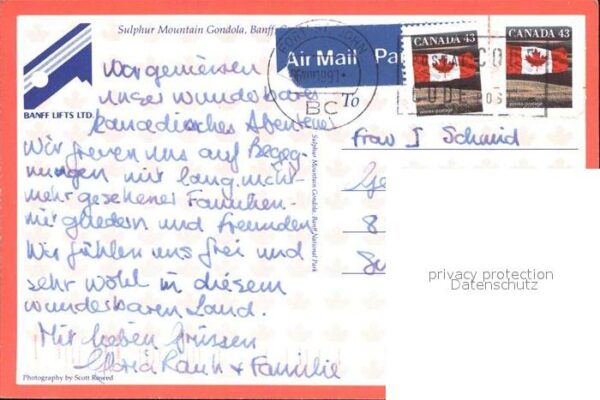 Sulphur Mountain Gondola, Banff
BANFF LIFTS LTD.
Air Mail Pa
BC
CANADA 43
CANADA 43
To
Wir geniessen
unser wunderbares
kanadisches Abenteuer
Wir freuen uns auf Begeg-
nungen mit lang nicht-
mehr gesehener Familien-
mitgliedern und Freunden
Wir fühlen uns frei und
sehr wohl in diesem
wunderbaren Land.
Mit lieben Grüssen
Gloria Rauh + Familie
Photography by Scott Rowed
Sulphur Mountain Gondola, Banff National Park
Frau J Schmid
8
privacy protection
Datenschutz